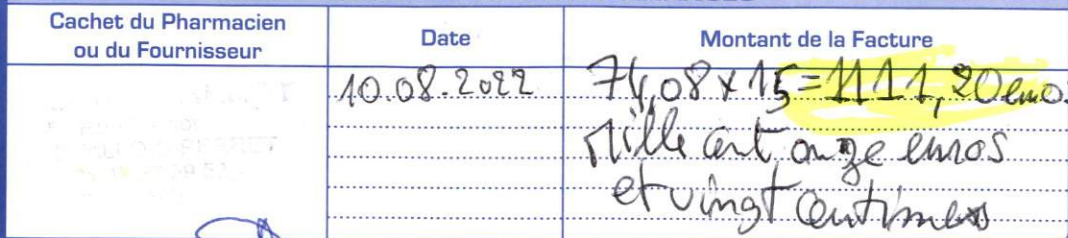 Cachet du Pharmacien
ou du Fournisseur
Date
Montant de la Facture
10.08.2022
74,08 x 15 = 1111,20 euro.
Mille cent onze euros
et vingt centimes